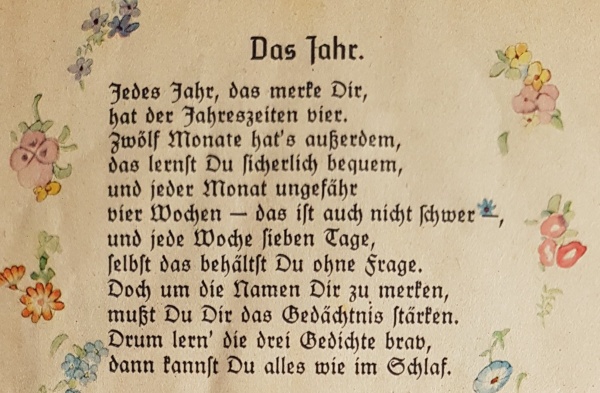 Das Jahr.
Jedes Jahr, das merke Dir,
hat der Jahreszeiten vier.
Zwölf Monate hat's außerdem,
das lernst Du sicherlich bequem,
und jeder Monat ungefähr
vier Wochen — das ist auch nicht schwer —,
und jede Woche sieben Tage,
selbst das behältst Du ohne Frage.
Doch um die Namen Dir zu merken,
mußt Du Dir das Gedächtnis stärken.
Drum lern' die drei Gedichte brav,
dann kannst Du alles wie im Schlaf.